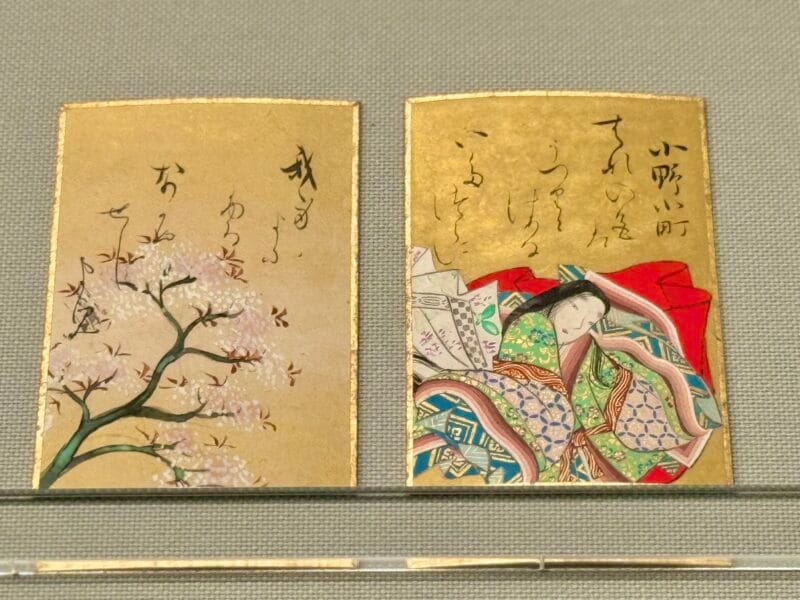 小野小町
はなの色は
うつり
にけりな
いたつらに
我身よに
ふる
なかめ
せし
まに